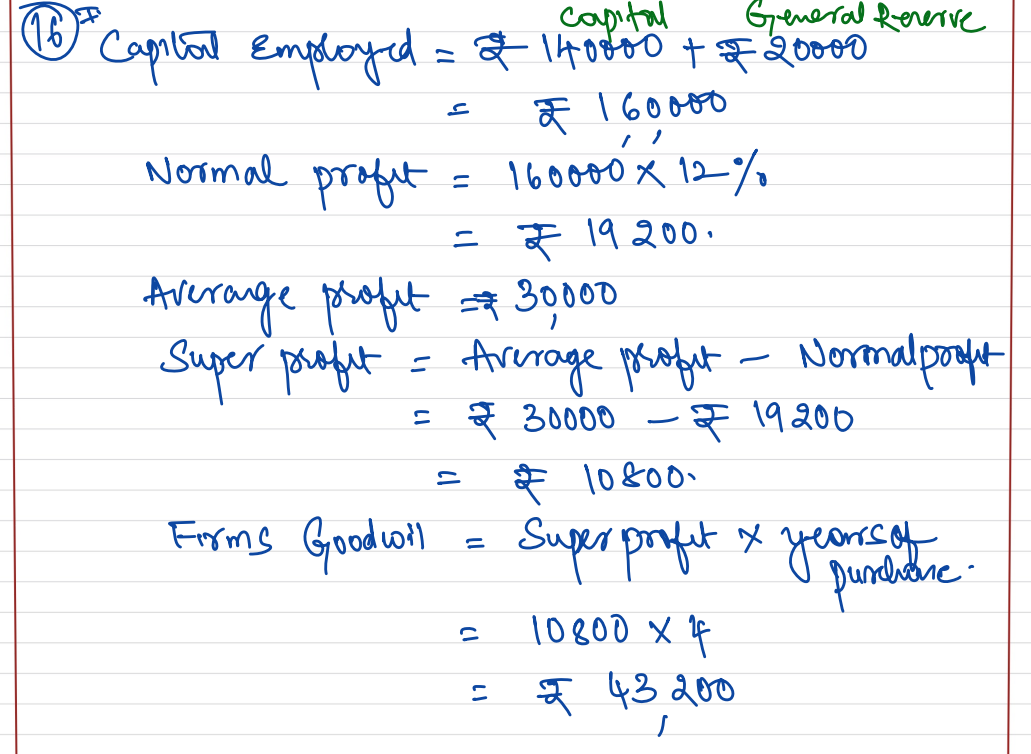 capital General Reserve
16 * Capital Employed = ₹ 140000 + ₹ 20000
= ₹ 1,60,000
Normal profit = 160000 × 12%
= ₹ 19200.
Average profit = ₹ 30,000
Super profit = Average profit - Normal profit
= ₹ 30000 - ₹ 19200
= ₹ 10800.
Firms Goodwill = Super profit × years of
purchase.
= 10800 × 4
= ₹ 43,200